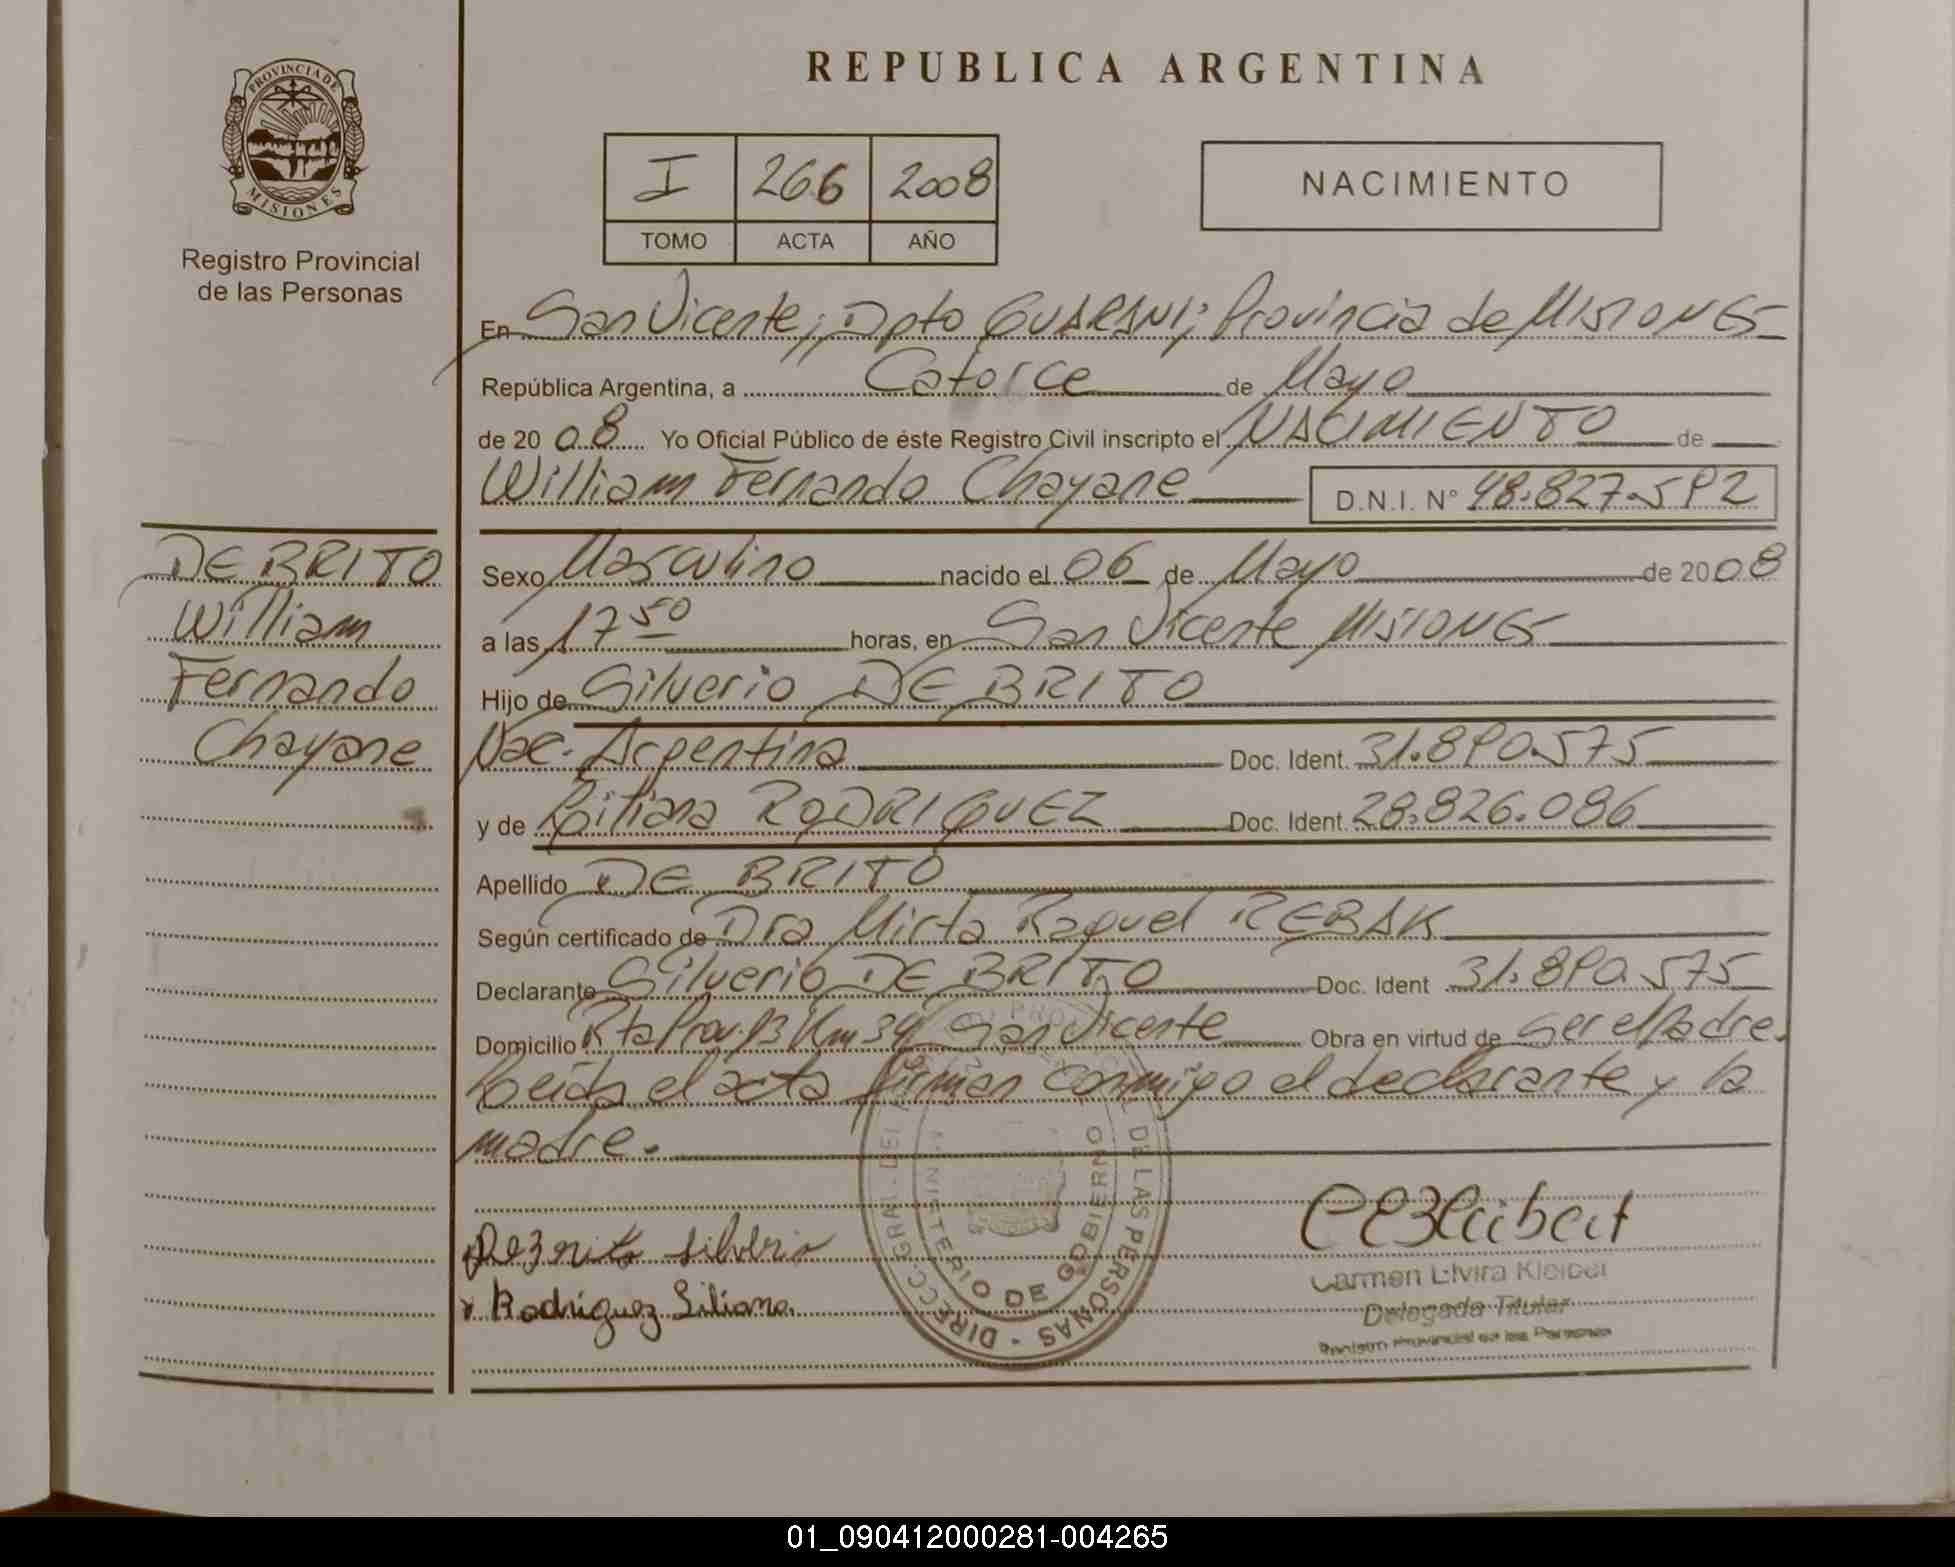 REPUBLICA ARGENTINA
PROVINCIA DE
MISIONES
Registro Provincial
de las Personas
I 266 2008
TOMO ACTA AÑO
NACIMIENTO
En San Vicente; Dpto GUARANI; Provincia de MISIONES
República Argentina, a Catorce de Mayo
de 2008 Yo Oficial Público de éste Registro Civil inscripto el NACIMIENTO de
William Fernando Chayane D.N.I. N° 48.827.592
DE BRITO
William
Fernando
Chayane
Sexo Masculino nacido el 06 de Mayo de 2008
a las 17 50 horas, en San Vicente MISIONES
Hijo de Silverio DE BRITO
Nac. Argentina Doc. Ident. 31.890.575
y de Liliana RODRIGUEZ Doc. Ident. 28.826.086
Apellido DE BRITO
Según certificado de Dra Mirta Raquel REBAK
Declarante Silverio DE BRITO Doc. Ident 31.890.575
Domicilio Rta Prov. 13 Km 34 San Vicente Obra en virtud de Ser el Padre.
Leída el acta firman conmigo el declarante y la
madre.
DeBrito Silverio
Rodriguez Liliana
Carmen Elvira Kleiber
Delegada Titular
Registro Provincial de las Personas
DE LAS PERSONAS - DIRECC. GRAL. DEL
MINISTERIO DE GOBIERNO
01_090412000281-004265